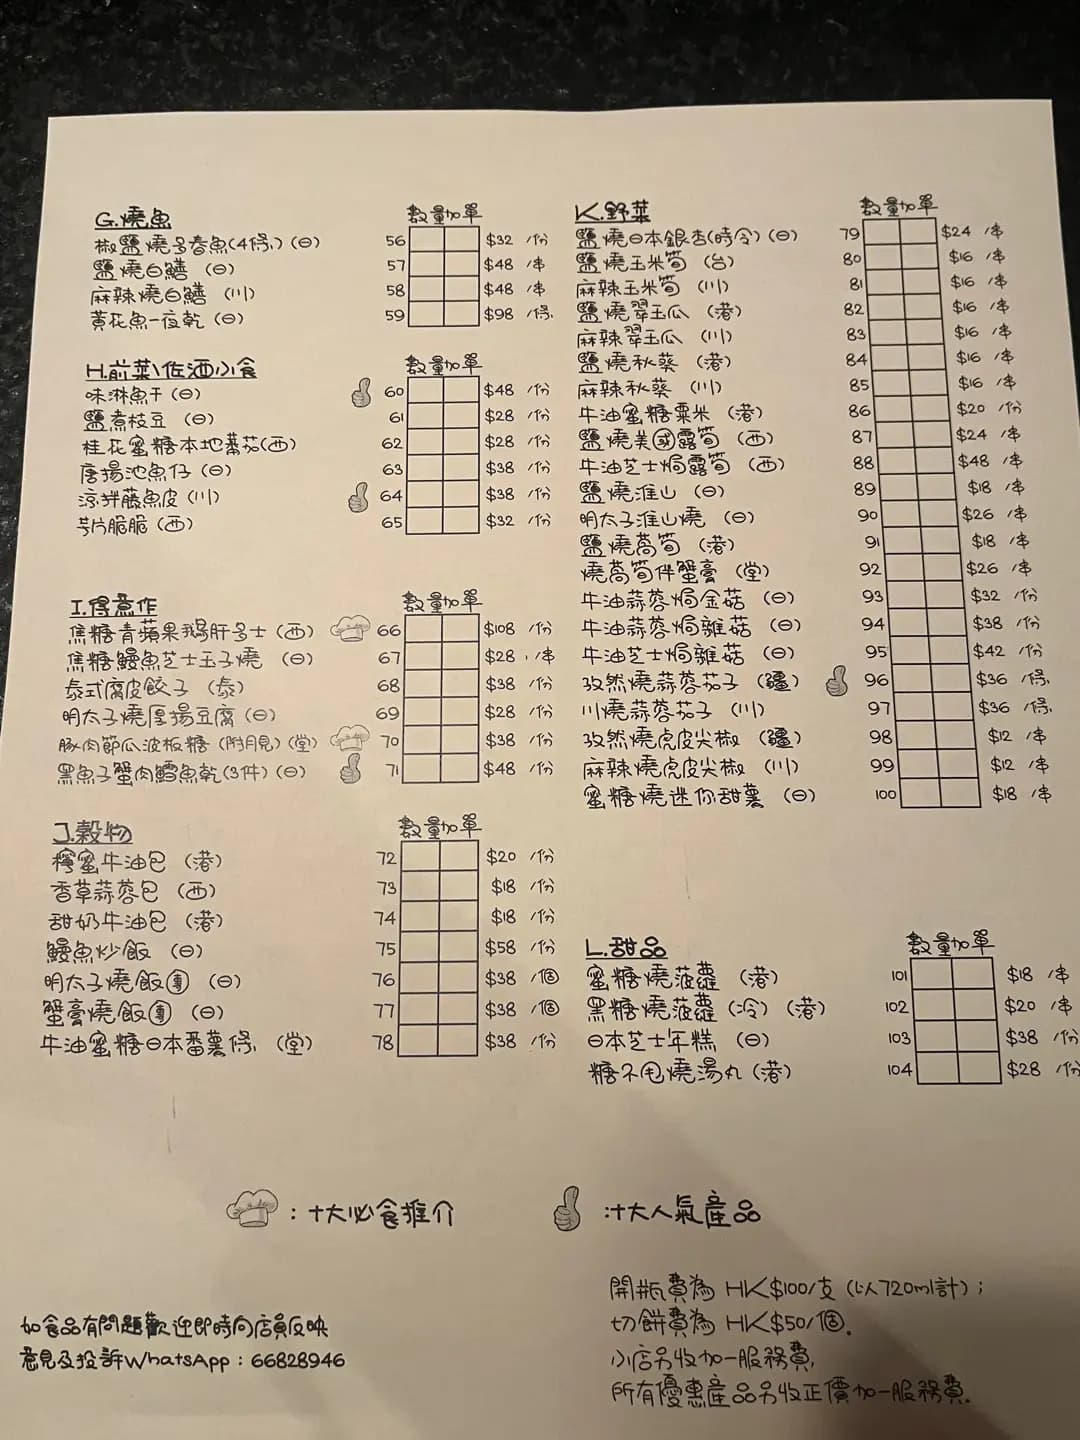 G.燒魚 數量加單
椒鹽燒多春魚(4條)(日) 56 $32 /份
鹽燒白鱔 (日) 57 $48 /串
麻辣燒白鱔 (川) 58 $48 /串
黃花魚一夜乾 (日) 59 $98 /條
H.前菜\佐酒小食 數量加單
味淋魚干 (日) 60 $48 /份
鹽煮枝豆 (日) 61 $28 /份
桂花蜜糖本地蕃茄(西) 62 $28 /份
唐揚池魚仔 (日) 63 $38 /份
涼拌藤魚皮 (川) 64 $38 /份
芋片脆脆 (西) 65 $32 /份
I.得意作 數量加單
焦糖青蘋果鵝肝多士 (西) 66 $108 /份
焦糖鰻魚芝士玉子燒 (日) 67 $28 /串
泰式腐皮餃子 (泰) 68 $38 /份
明太子燒厚揚豆腐 (日) 69 $28 /份
豚肉節瓜波板糖 (附月見) (堂) 70 $38 /份
黑魚子蟹肉鱈魚乾(3件) (日) 71 $48 /份
J.穀物 數量加單
檸蜜牛油包 (港) 72 $20 /份
香草蒜蓉包 (西) 73 $18 /份
甜奶牛油包 (港) 74 $18 /份
鰻魚炒飯 (日) 75 $58 /份
明太子燒飯團 (日) 76 $38 /個
蟹膏燒飯團 (日) 77 $38 /個
牛油蜜糖日本番薯條 (堂) 78 $38 /份
K.野菜 數量加單
鹽燒日本銀杏(時令) (日) 79 $24 /串
鹽燒玉米筍 (台) 80 $16 /串
麻辣玉米筍 (川) 81 $16 /串
鹽燒翠玉瓜 (港) 82 $16 /串
麻辣翠玉瓜 (川) 83 $16 /串
鹽燒秋葵 (港) 84 $16 /串
麻辣秋葵 (川) 85 $16 /串
牛油蜜糖粟米 (港) 86 $20 /份
鹽燒美國露筍 (西) 87 $24 /串
牛油芝士焗露筍 (西) 88 $48 /串
鹽燒淮山 (日) 89 $18 /串
明太子淮山燒 (日) 90 $26 /串
鹽燒萵筍 (港) 91 $18 /串
燒萵筍伴蟹膏 (堂) 92 $26 /串
牛油蒜蓉焗金菇 (日) 93 $32 /份
牛油蒜蓉焗雜菇 (日) 94 $38 /份
牛油芝士焗雜菇 (日) 95 $42 /份
孜然燒蒜蓉茄子 (疆) 96 $36 /條
川燒蒜蓉茄子 (川) 97 $36 /條
孜然燒虎皮尖椒 (疆) 98 $12 /串
麻辣燒虎皮尖椒 (川) 99 $12 /串
蜜糖燒迷你甜薯 (日) 100 $18 /串
L.甜品 數量加單
蜜糖燒菠蘿 (港) 101 $18 /串
黑糖燒菠蘿 (冷) (港) 102 $20 /串
日本芝士年糕 (日) 103 $38 /份
糖不甩燒湯丸 (港) 104 $28 /份
:十大必食推介
:十大人氣產品
如食品有問題歡迎即時向店員反映
意見及投訴WhatsApp：66828946
開瓶費為 HK$100/支 (以720ml計)；
切餅費為 HK$50/個。
小店另收加一服務費,
所有優惠產品另收正價加一服務費。